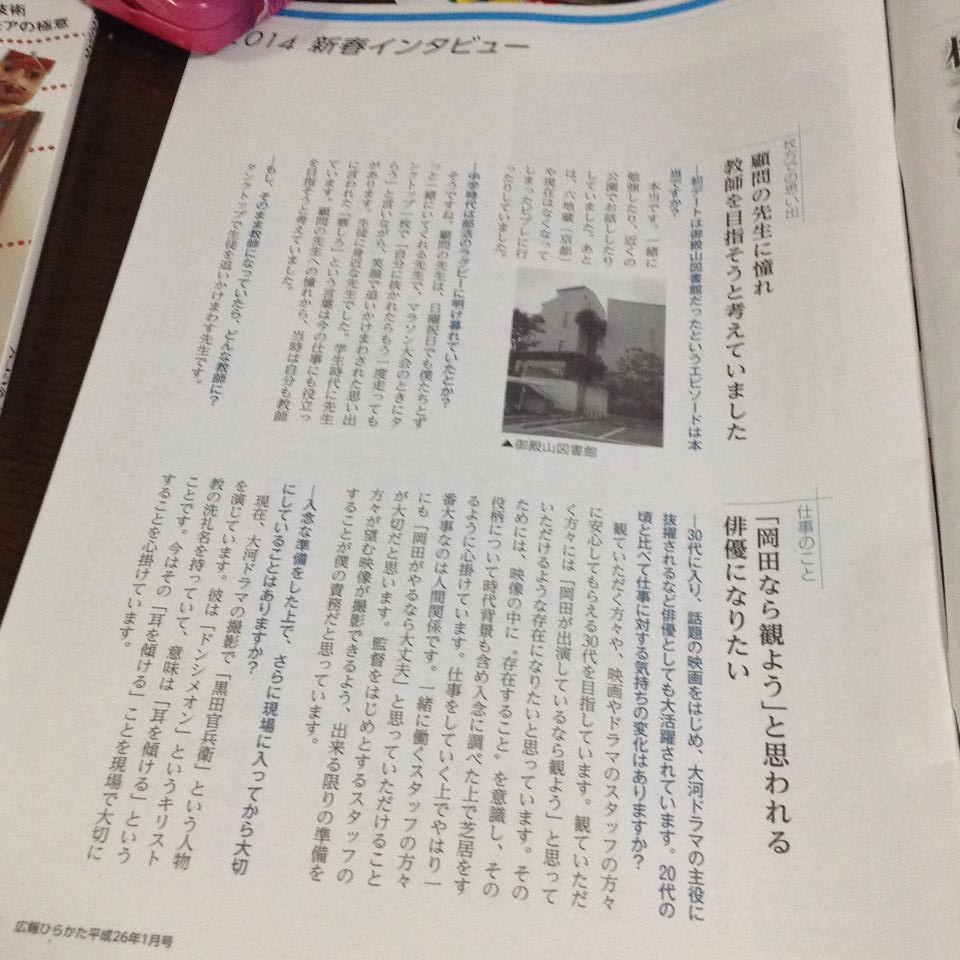 技術
アの極意
2014 新春インタビュー
枚方での思い出
顧問の先生に憧れ
教師を目指そうと考えていました
―初デートは御殿山図書館だったというエピソードは本
当ですか?
本当です。一緒に
勉強したり、近くの
公園でお話ししたり
していました。あと
は、六地蔵(京都)
や現在はなくなって
しまったビブレに行
ったりしていました。
▲御殿山図書館
―中学時代は部活のラグビーに明け暮れていたとか?
そうですね。顧問の先生は、日曜祝日でも僕たちとず
っと一緒にいてくれる先生で、マラソン大会のときにタ
ンクトップ一枚で「自分に抜かれたらもう一度走っても
らう」と言いながら、笑顔で追いかけまわされた思い出
があります。生徒に身近な先生でした。学生時代に先生
に言われた「察しろ」という言葉は今の仕事にも役立っ
ています。顧問の先生への憧れから、当時は自分も教師
を目指そうと考えていました。
―もし、そのまま教師になっていたら、どんな教師に?
タンクトップで生徒を追いかけまわす先生です。
仕事のこと
「岡田なら観よう」と思われる
俳優になりたい
―30代に入り、話題の映画をはじめ、大河ドラマの主役に
抜擢されるなど俳優としても大活躍されています。20代の
頃と比べて仕事に対する気持ちの変化はありますか?
観ていただく方々や、映画やドラマのスタッフの方々
に安心してもらえる30代を目指しています。観ていただ
く方々には「岡田が出演しているなら観よう」と思って
いただけるような存在になりたいと思っています。その
ためには、映像の中に〝存在すること〟を意識し、その
役柄について時代背景も含め入念に調べた上で芝居をす
るように心掛けています。仕事をしていく上でやはり一
番大事なのは人間関係です。一緒に働くスタッフの方々
にも「岡田がやるなら大丈夫」と思っていただけること
が大切だと思います。監督をはじめとするスタッフの
方々が望む映像が撮影できるよう、出来る限りの準備を
することが僕の責務だと思っています。
―入念な準備をした上で、さらに現場に入ってから大切
にしていることはありますか?
現在、大河ドラマの撮影で「黒田官兵衛」という人物
を演じています。彼は「ドンシメオン」というキリスト
教の洗礼名を持っていて、意味は「耳を傾ける」という
ことです。今はその「耳を傾ける」ことを現場で大切に
することを心掛けています。
広報ひらかた平成26年1月号